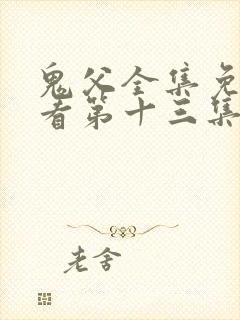 鬼父全集免
看第十三集
老舍